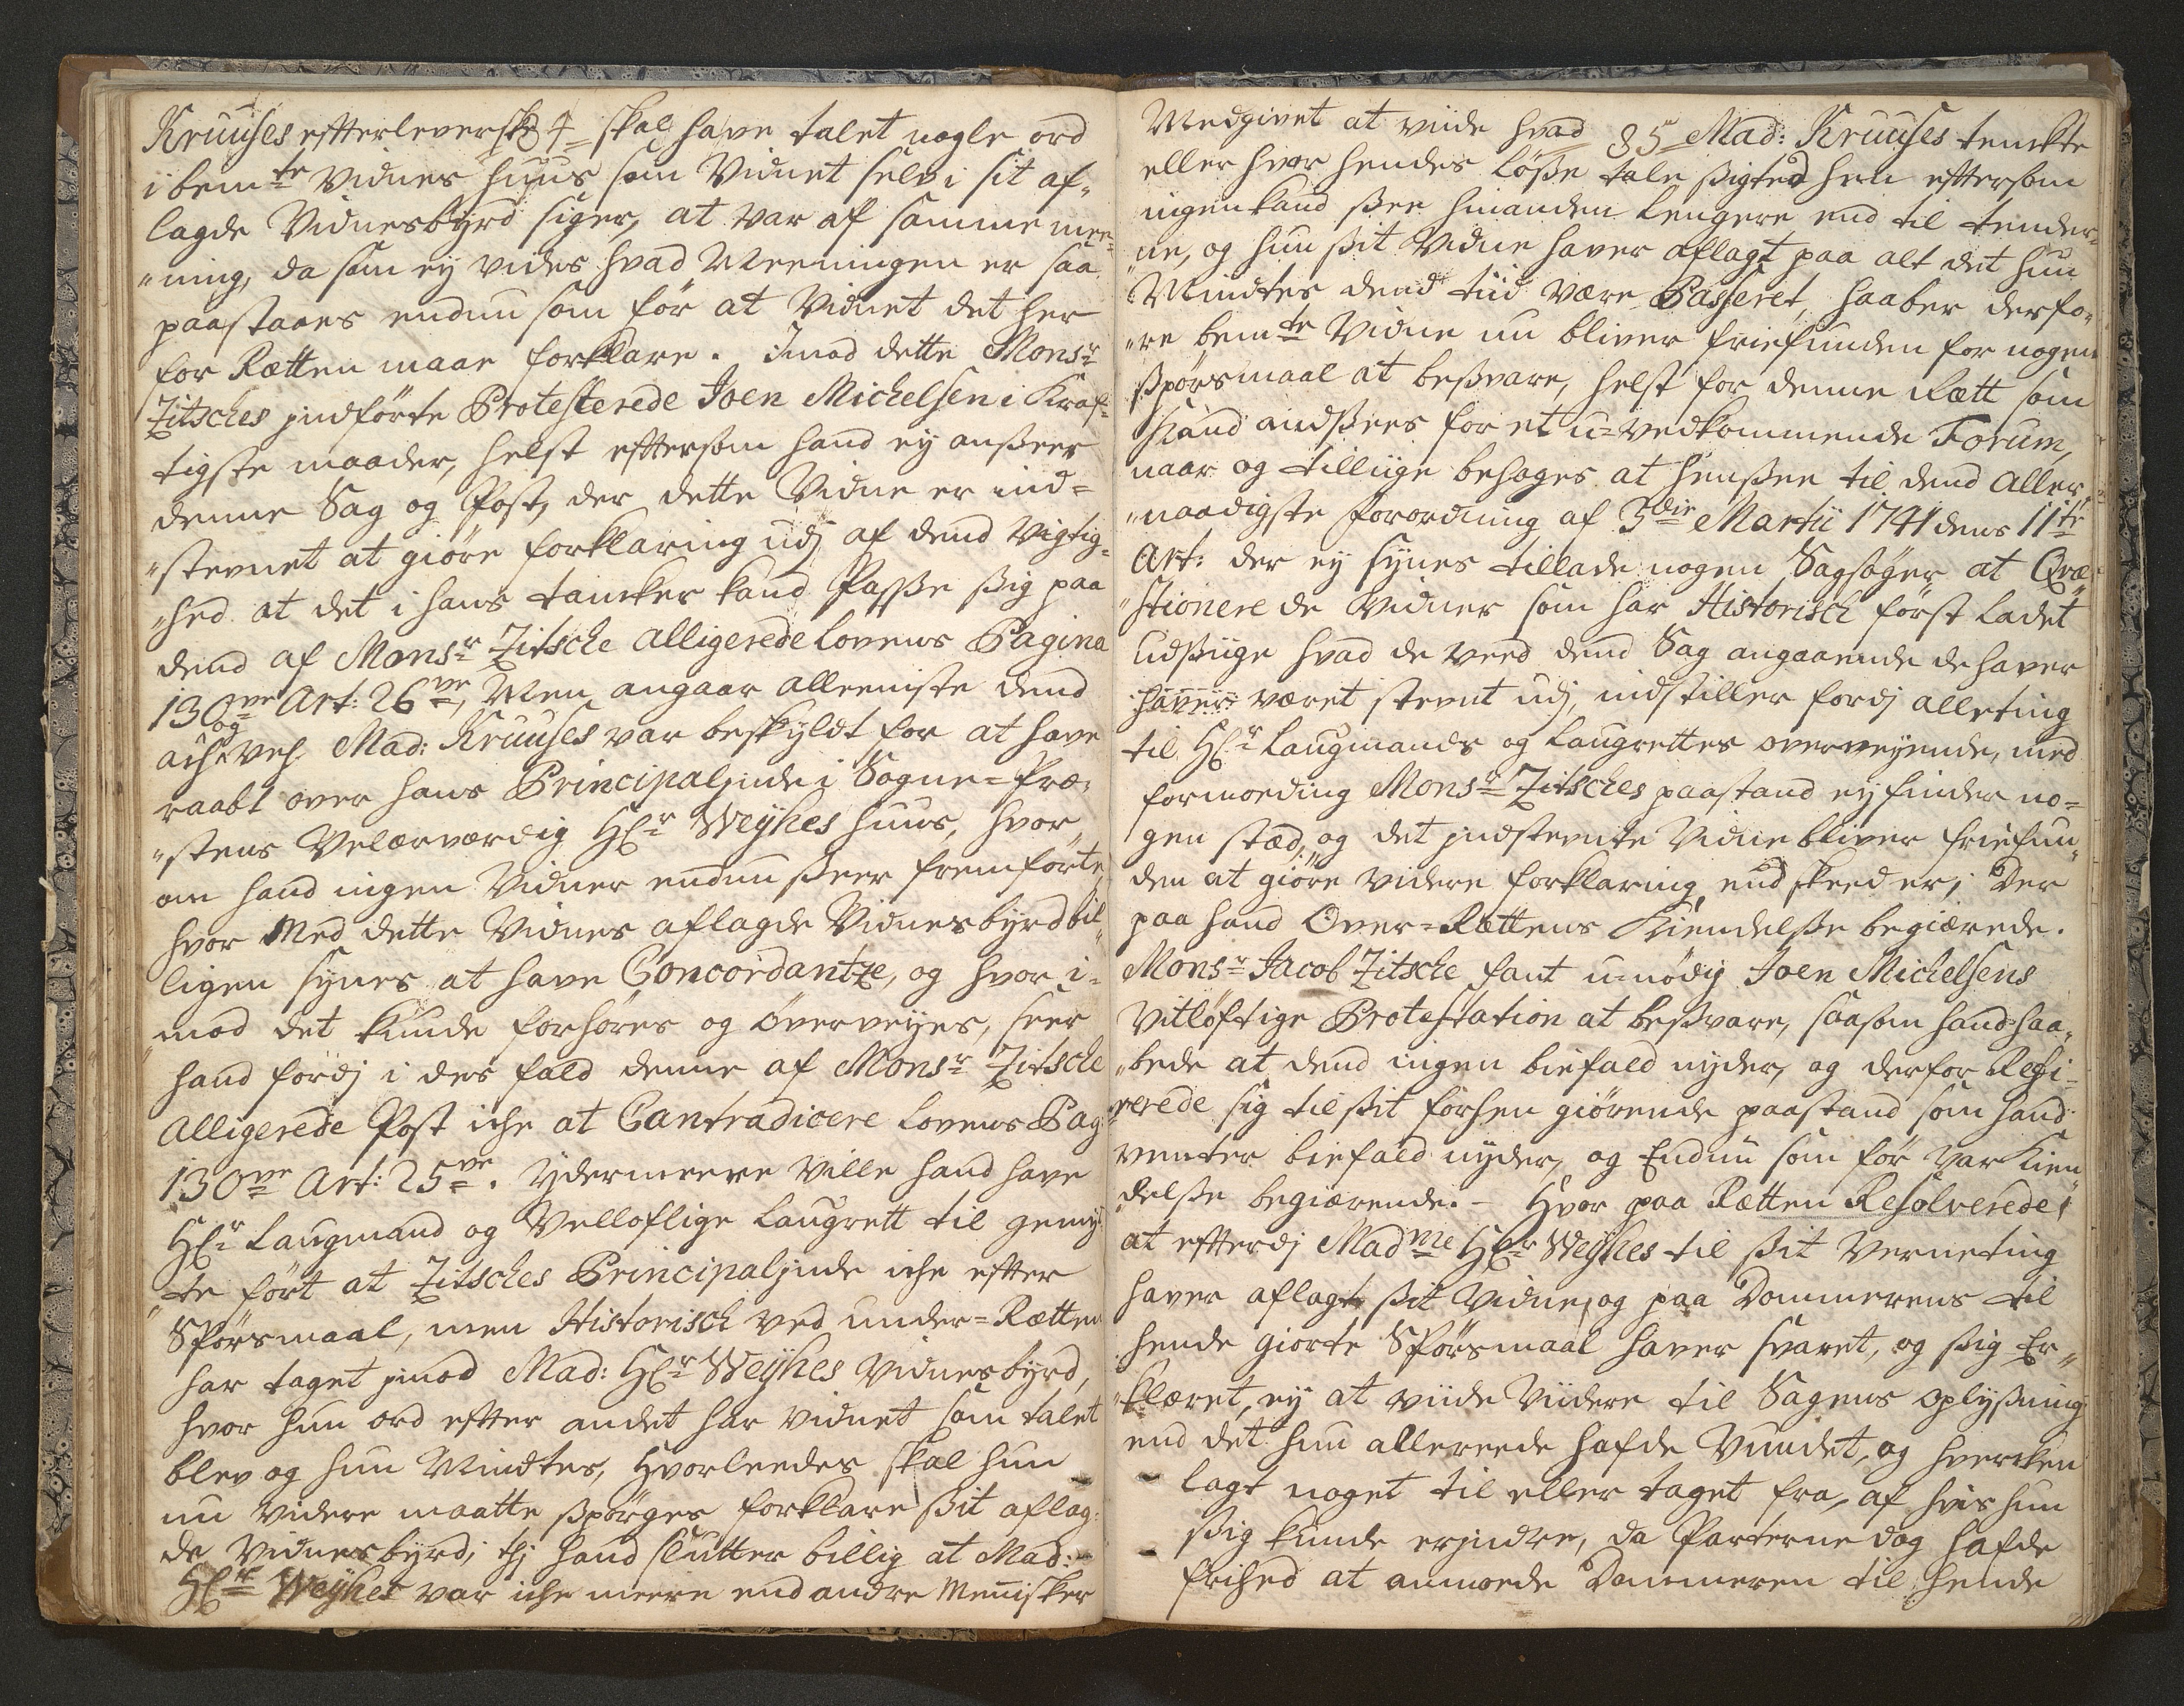 84
Kruuses efterleverske skal have talet nogle ord
i bemte Vidnes huus som Vidnet selv i sit af„
lagde Vidnesbyrd siger, at var af samme mee„
„ning, da som ej vides hvad Meeningen er saa
paastaaes endnu som för at Vidnet det her
for Rætten maae forklare. Imod dette Monsr
Zitsches jndförte Protesterede Joen Michelsen i Kraf„
tigste maader, helst eftersom hand ey ansseer
denne Sag og Post, der dette Vidne er ind=
„stevnet at giöre forklaring udj af dend Vigtig„
„hed at det i hans tancker kand Passe ssig paa
dend af Monsr Zitsche alligerede Lovens Pagina
130ve Art: 26ve, Men angaar alleeniste dend
og Mad: Kruuses var beskyldt for at have
raabt over hans Principalinde i Sogne=Præ„
„stens Velærværdig Hr Weyhes huus, hvor„
om hand ingen Vidner endnu sseer fremförte,
hvor Med dette Vidnes aflagde Vidnesbyrd bil„
ligen synes at have Concordantze, og hvor i=
mod det kunde forhöres og överveyes, seer
hand fordj i des fald denne af Monsr Zitsche
Alligerede Post iche at Contradicere Lovens Pag:
130ve Art: 25ve. Ydermeere ville hand have
Hr Laugmand og Velloflige Laugrett til gemy„
„te fört at Zitsches Principalinde iche efter
Spörsmaal, men Historisch ved under=Rætten
har taget jmod Mad: Hr Weyhes Vidnesbyrd,
hvor hun ord efter andet har vidnet som talet
blev og hun Mindtes, Hvorleedes skal hun
nu videre maatte sspörges forklare ssit aflag„
de Vidnesbyrd; thj hand slutter billig at Mad:
Hr Weyhes var iche meere end andre Menisker

85
Medgivet at viide hvad Mad: Kruuses tenckte
eller hvor hendes Lösse tale ssigted hen eftersom
ingen kand ssee hinanden Lengere end til tender„
„ne, og hun ssit Vidne haver aflagt paa alt det hun
Mindtes dend tiid være Passeret, haaber derfo„
„re bemte Vidne nu bliver friefunden for nogen
sspörsmaal at bessvare, helst for denne Rætt som
hand andssees for et u=vedkommende Forum,
naar og tilliige behages at henssee til dend Aller„
„naadigste Forordning af 3die Martii 1741 dens 11te
Art: der ey synes tillade nogen Sagsöger at Qvæ„
„stionere de Vidner som har Historisch först ladet
udssiige hvad de veed dend Sag angaaende de haver
haver været stevnt udj, indstiller fordj alleting
til Hr Laugmands og Laugrettes overveyende, med
formoeding Monsr Zitsches paastand ey finder no=
gen stæd, og det jndstevnte Vidne bliver friefun„
den at giöre videre forklaring end skeed er; Der
paa hand Over=Rættens Kiendelsse begiærede.
Monsr Jacob Zitsche fant u=nödig Joen Michelsens
Vitlöftige Protestation at bessvare, saasom hand haa„
„bede at dend ingen biefald nyder, og derfor Refe„
rerede sig til ssit forhen giörende paastand som hand
venter biefald nyder, og Endnu som för var Kien„
„delsse begiærende. – Hvor paa Rætten Resolverede,
at efterdj Madme Hr Weyhes til ssit Verneting
haver aflagt ssit Vidne, og paa Dommerens til
hende giorte Spörsmaal haver svaret, og ssig Er„
„klæret, ey at viide Viidere til Sagens oplyssning
end det hun allereede hafde Vundet, og hvercken
lagt noget til eller taget fra, af hvis hun
ssig kunde erjndre, da Parterne dog hafde
frihed at anmode Dommeren til hende